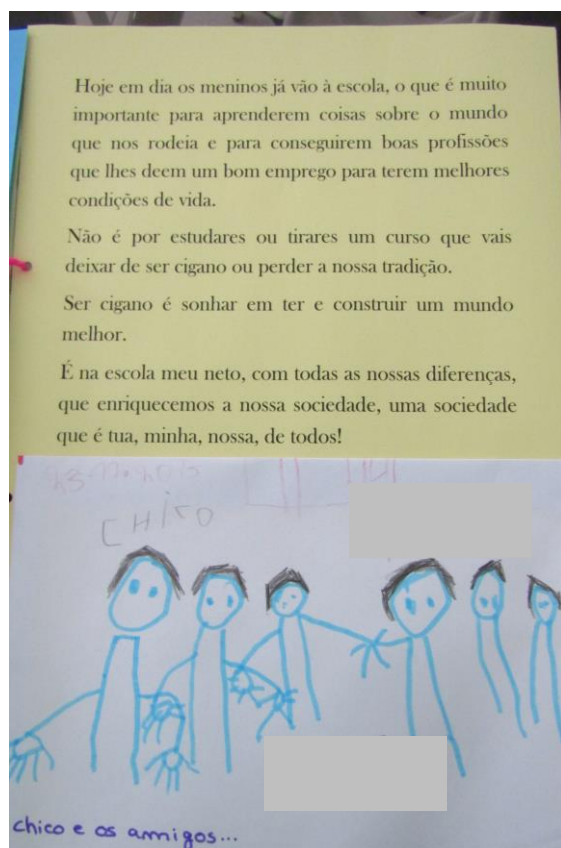 Hoje em dia os meninos já vão à escola, o que é muito
importante para aprenderem coisas sobre o mundo
que nos rodeia e para conseguirem boas profissões
que lhes deem um bom emprego para terem melhores
condições de vida.
Não é por estudares ou tirares um curso que vais
deixar de ser cigano ou perder a nossa tradição.
Ser cigano é sonhar em ter e construir um mundo
melhor.
É na escola meu neto, com todas as nossas diferenças,
que enriquecemos a nossa sociedade, uma sociedade
que é tua, minha, nossa, de todos!
CHICO
chico e os amigos...